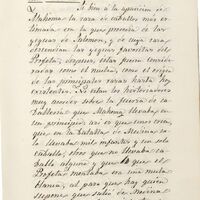 A bien á la aparicion de
Mahoma la raza de caballos mas es-
timada era la que procedia de las
yeguas de Salomon, y de cuya raza
descendian las yeguas favoritas del
Profeta; despues, estas fueron conside-
radas como el como el origen
de las principales razas hasta hoy
existentes. No estan los historiadores
muy acordes sobre la fuerza de ca-
balleria que Mahoma llevaba en
un principio; asi es que unos creen
que en la batalla de
llevaba mil infantes y un solo
caballo; otros que no llevaba ca-
ballo alguno y que el
Profeta montaba en una mula
blanca, al paso que hay quien
supone que salió de Medina